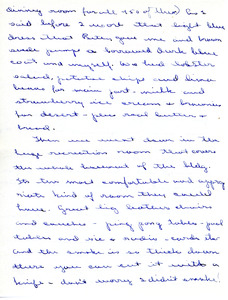 dining room (for all 450 of these) As I
said before I wore that light blue
dress that Betsy gave me and brown
suede pumps a borrowed dark blue
coat and myself. We had lobster
salad, potatoe chips and lima
beans for main part - milk and
strawberry ice cream & brownies
for desert - plus real butter &
bread.
Then we went down in the
large recreation room that covers
the whole basement of the bldg.
Its the most comfortable and appro
riate kind of room they could
have. Great big leather chairs
and couches - ping pong tables - pool
tables and vic & radio - cards etc
and the smoke is so thick down
there you can cut it with a
knife - don't worry I didn't smoke.